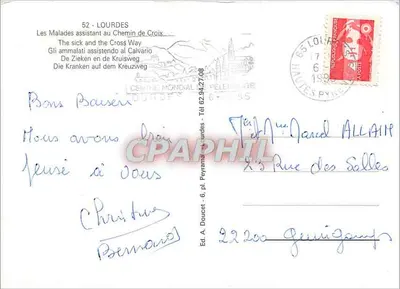 52 - LOURDES
Les Malades assistant au Chemin de Croix
The sick and the Cross Way
Gli ammalati assistendo al Calvario
De Zieken en de Kruisweg
Die Kranken auf dem Kreuzweg
CENTRE MONDIAL
65 LOU
HAUTES PYR
Bons Baisers
Nous avons bien
pensé à vous
Christine
Bernard
Ed. A. Doucet - 6, pl. Peyramale Lourdes - Tél 62.94.27.08
CPARAMA
Mr et Mme Marcel ALLAIN
23 Rue des Salles
22200 Guingamp